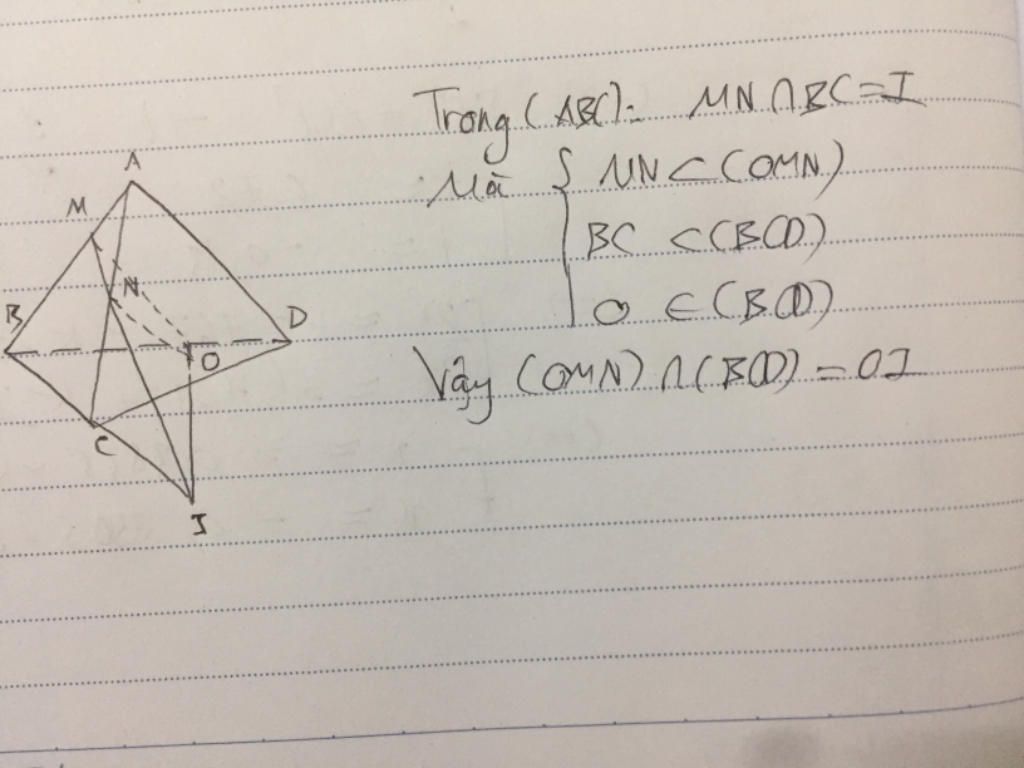 A
M
N
B
D
O
C
I
Trong (ABC): MN ∩ BC = I
Mà { MN ⊂ (OMN)
BC ⊂ (BCD)
O ∈ (BCD)
Vậy (OMN) ∩ (BCD) = OI